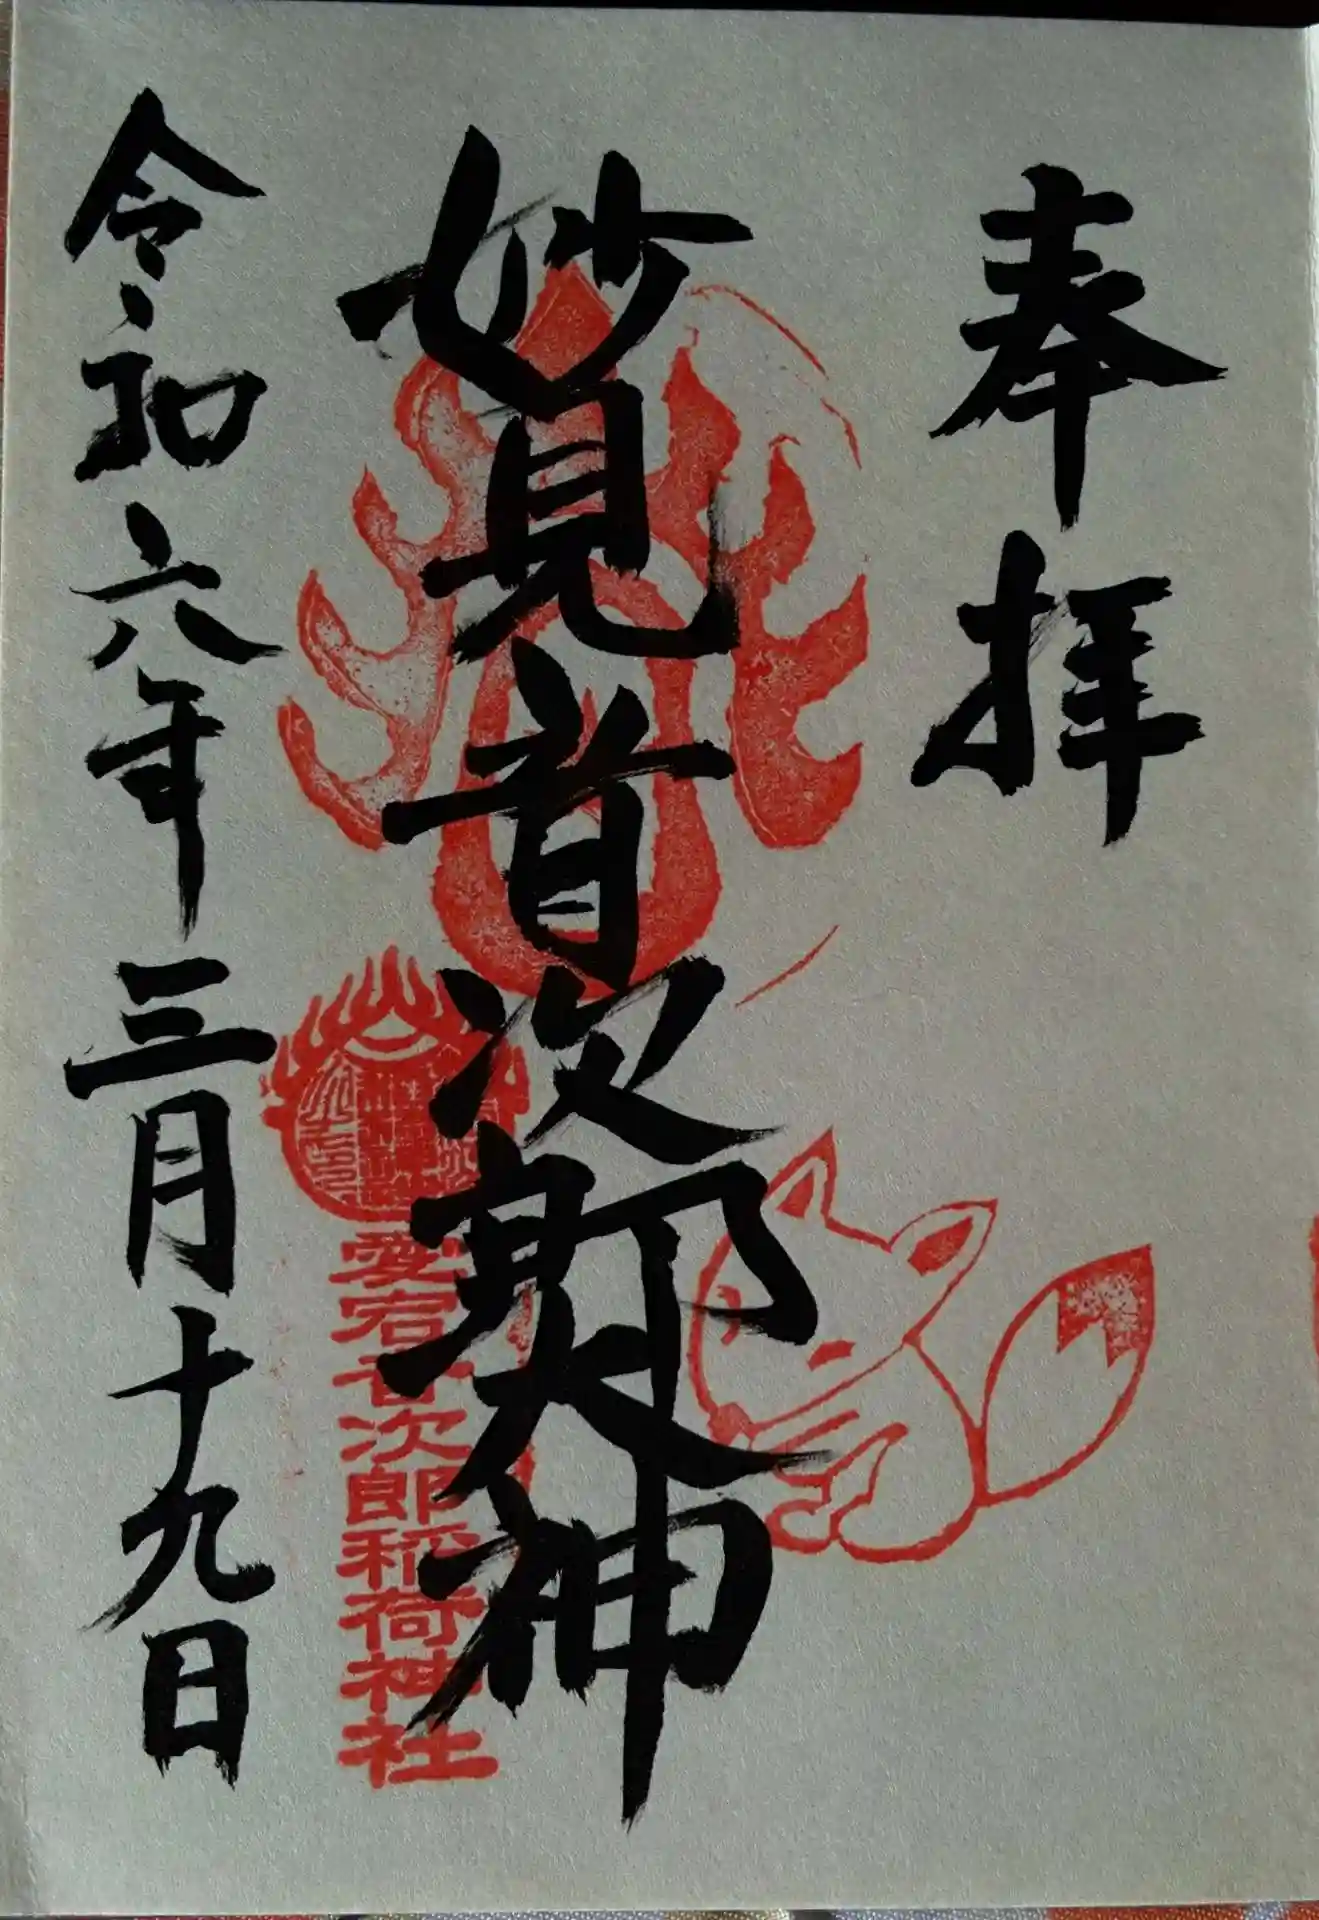 奉拝
妙見首次郎大神
愛宕首次郎稲荷神社
令和六年三月十九日